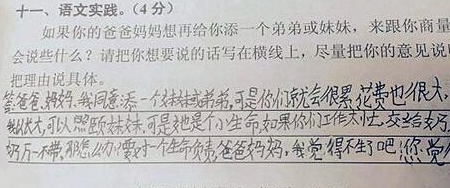 十一、语文实践。（4分）
如果你的爸爸妈妈想再给你添一个弟弟或妹妹，来跟你商量
会说些什么？请把你想要说的话写在横线上，尽量把你的意见说
把理由说具体。
答爸爸,妈妈,我同意添一个妹妹或弟弟,可是你们就会很累,花费也很大,
我长大,可以照顾妹妹,可是她是个小生命,如果你们工作太忙,交给奶
奶万一不带,那怎么办,要对一个生命负责,爸爸妈妈,我觉得不生了吧,您觉